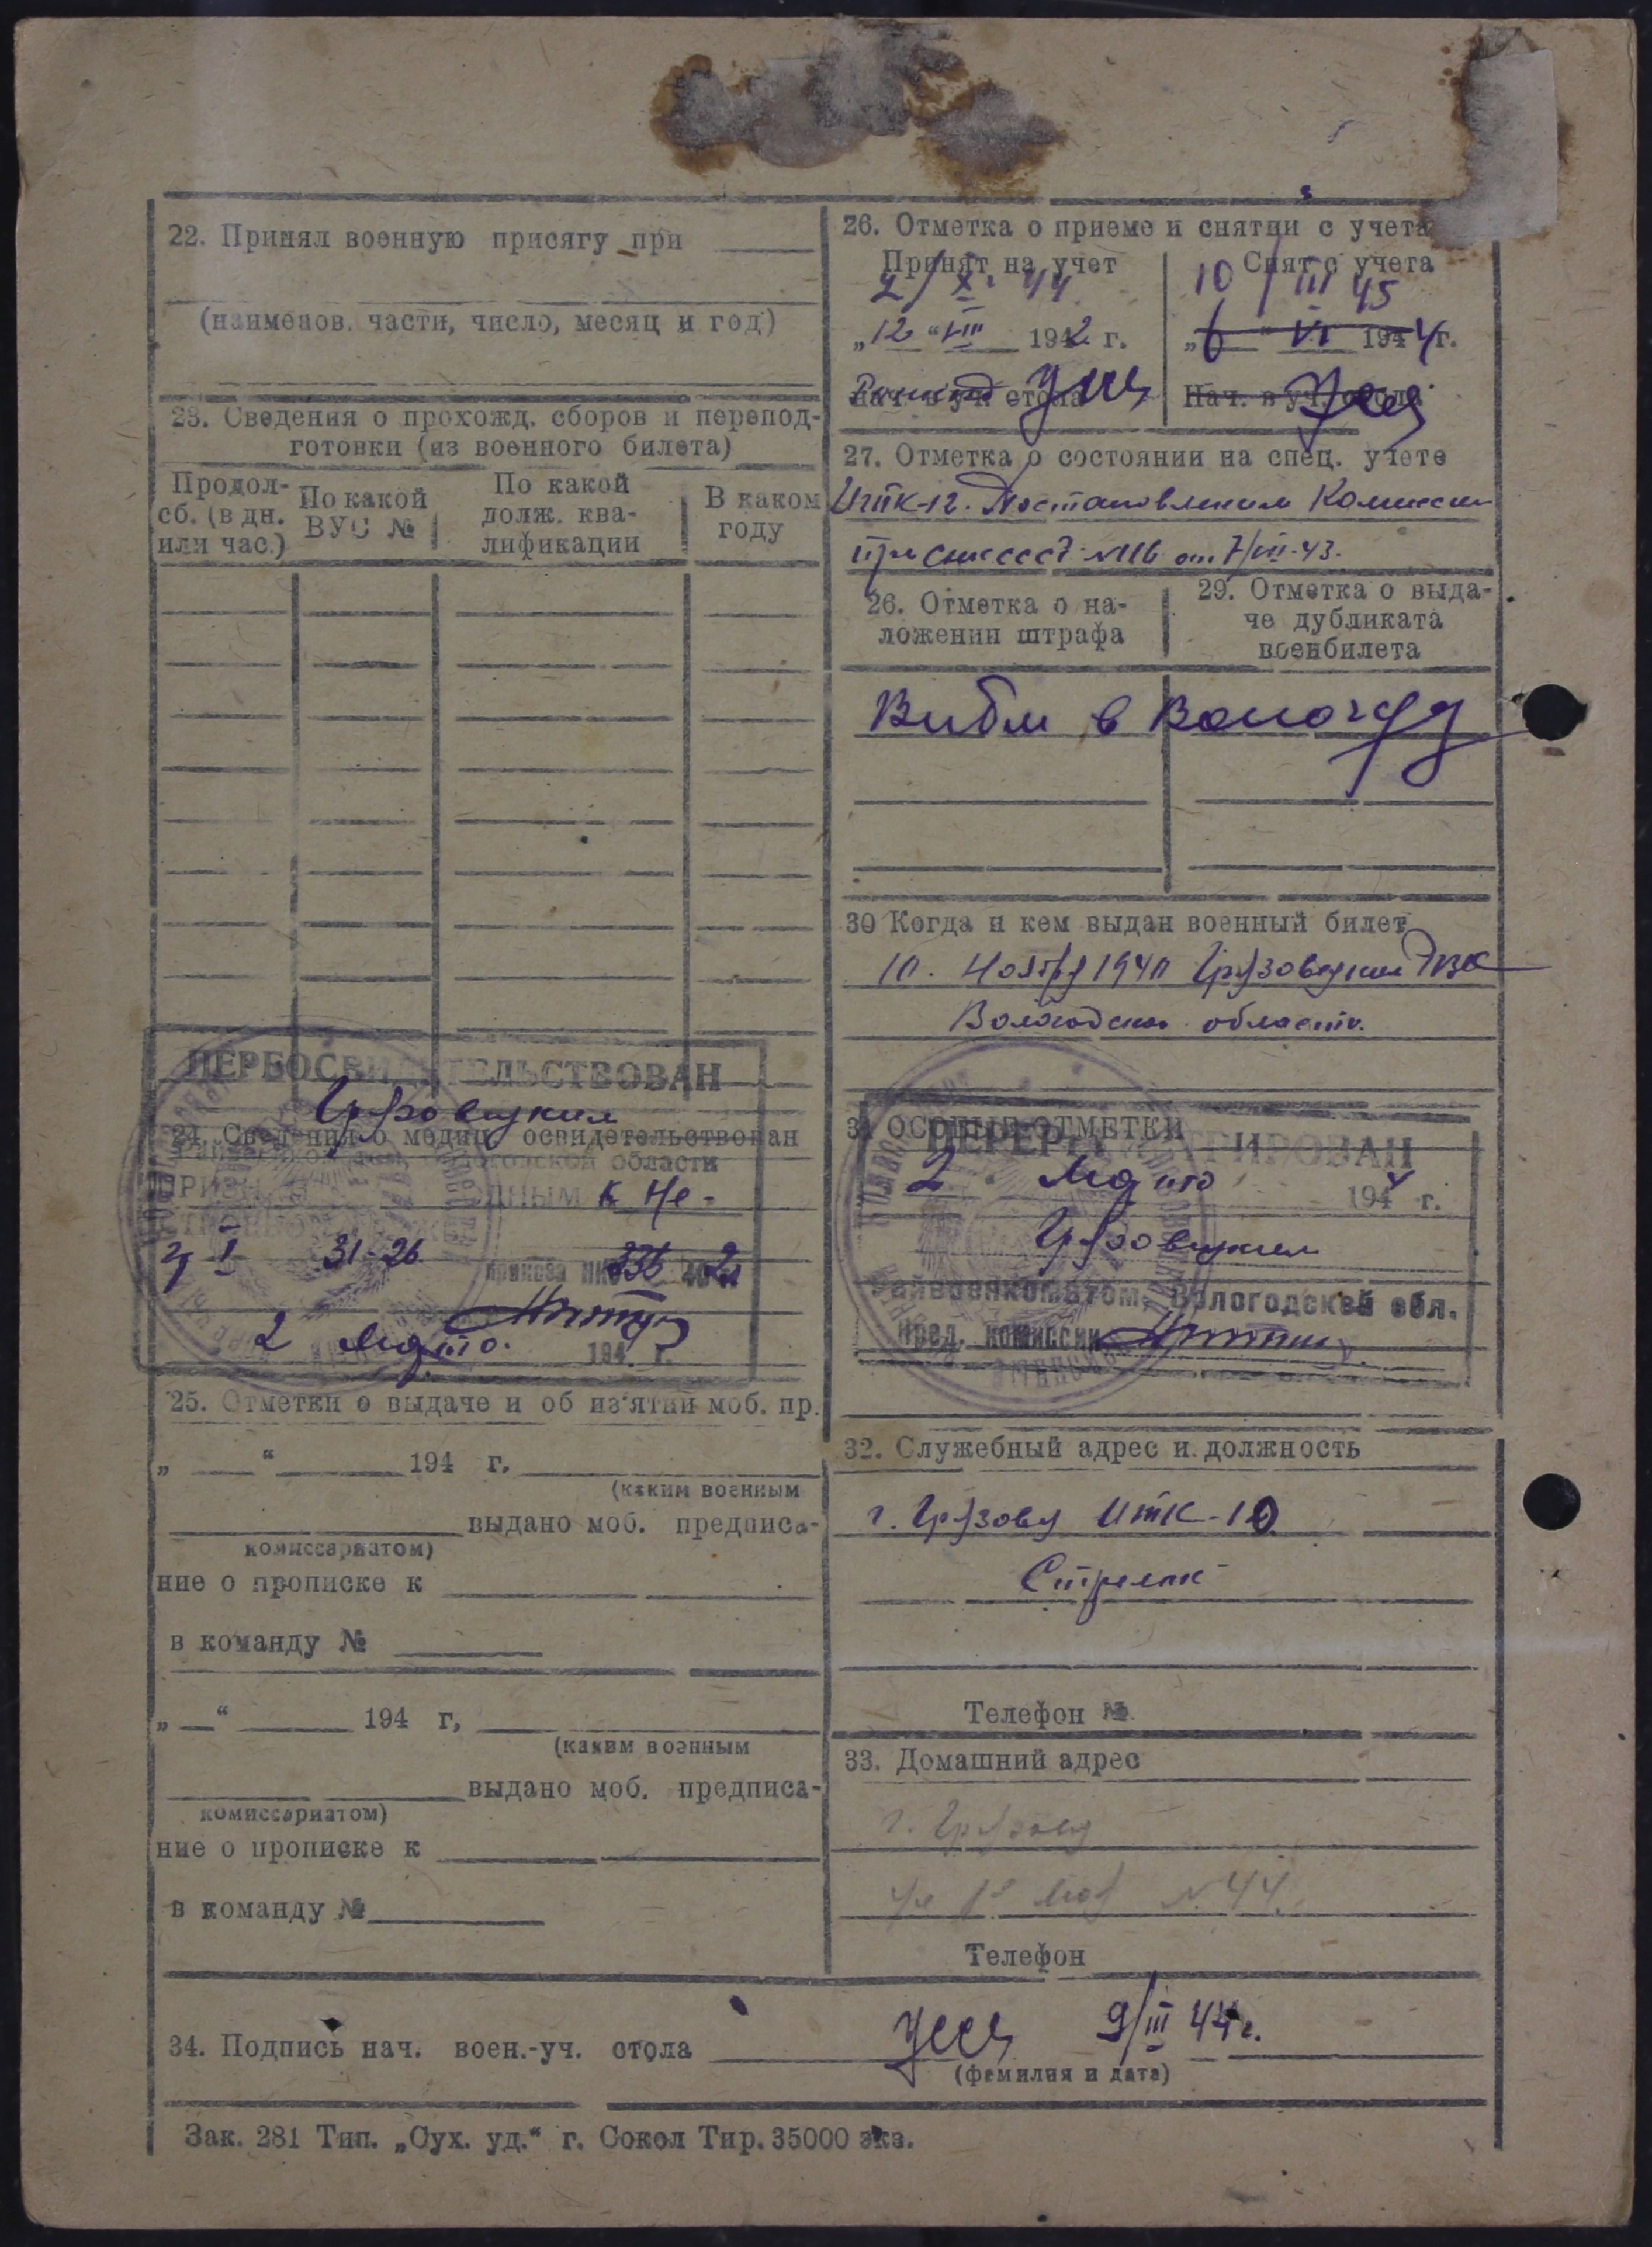 22. Принял военную присягу при
(наименов. части, число, месяц и год)
23. Сведения о прохожд. сборов и перепод-
готовки (из военного билета)
Продол-
сб. (в дн.
или час.)
По какой
ВУС №
По какой
долж. ква-
лификации
В каком
году
ПЕРЕОСВИДЕТЕЛЬСТВОВАН
Грязовецким
24. Сведения о медиц. освидетельствован
Райвоенкоматом, Вологодской области
к Не-
гр I 31-26 приказа НКО 336 42
2 марта. 194 г.
25. Отметки о выдаче и об из'ятии моб. пр.
„ “ 194 г.
(каким военным
выдано моб. предписа-
комиссариатом)
ние о прописке к
в команду №
„ “ 194 г,
(каким военным
выдано моб. предписа-
комиссариатом)
ние о прописке к
в команду №
26. Отметка о приеме и снятии с учета
Принят на учет
2/X. 44
„12“ VIII 1942 г.
Нач. в уч. стола
Снят с учета
10/III 45
„6“ VI 1944 г.
Нач. в уч. стола
27. Отметка о состоянии на спец. учете
ИТК-12. Постановлением Комиссии
при СНК СССР №116 от 7/VII-43.
26. Отметка о на-
ложении штрафа
29. Отметка о выда-
че дубликата
военбилета
Выбыл в Вологду
30 Когда и кем выдан военный билет
10. Ноября 1940 Грязовецким РВК
Вологодской области.
31 ОСОБЫЕ ОТМЕТКИ
ПЕРЕРЕГИСТРИРОВАН
2 Марта 1944 г.
Грязовецким
Райвоенкоматом, Вологодской обл.
Пред. комиссии
32. Служебный адрес и должность
г. Грязовец ИТК-10
Стрелок
Телефон №
33. Домашний адрес
г. Грязовец
ул 1е мая №44.
Телефон
34. Подпись нач. воен.-уч. стола 9/III 44 г.
(фамилия и дата)
Зак. 281 Тип. „Сух. уд.“ г. Сокол Тир. 35000 экз.